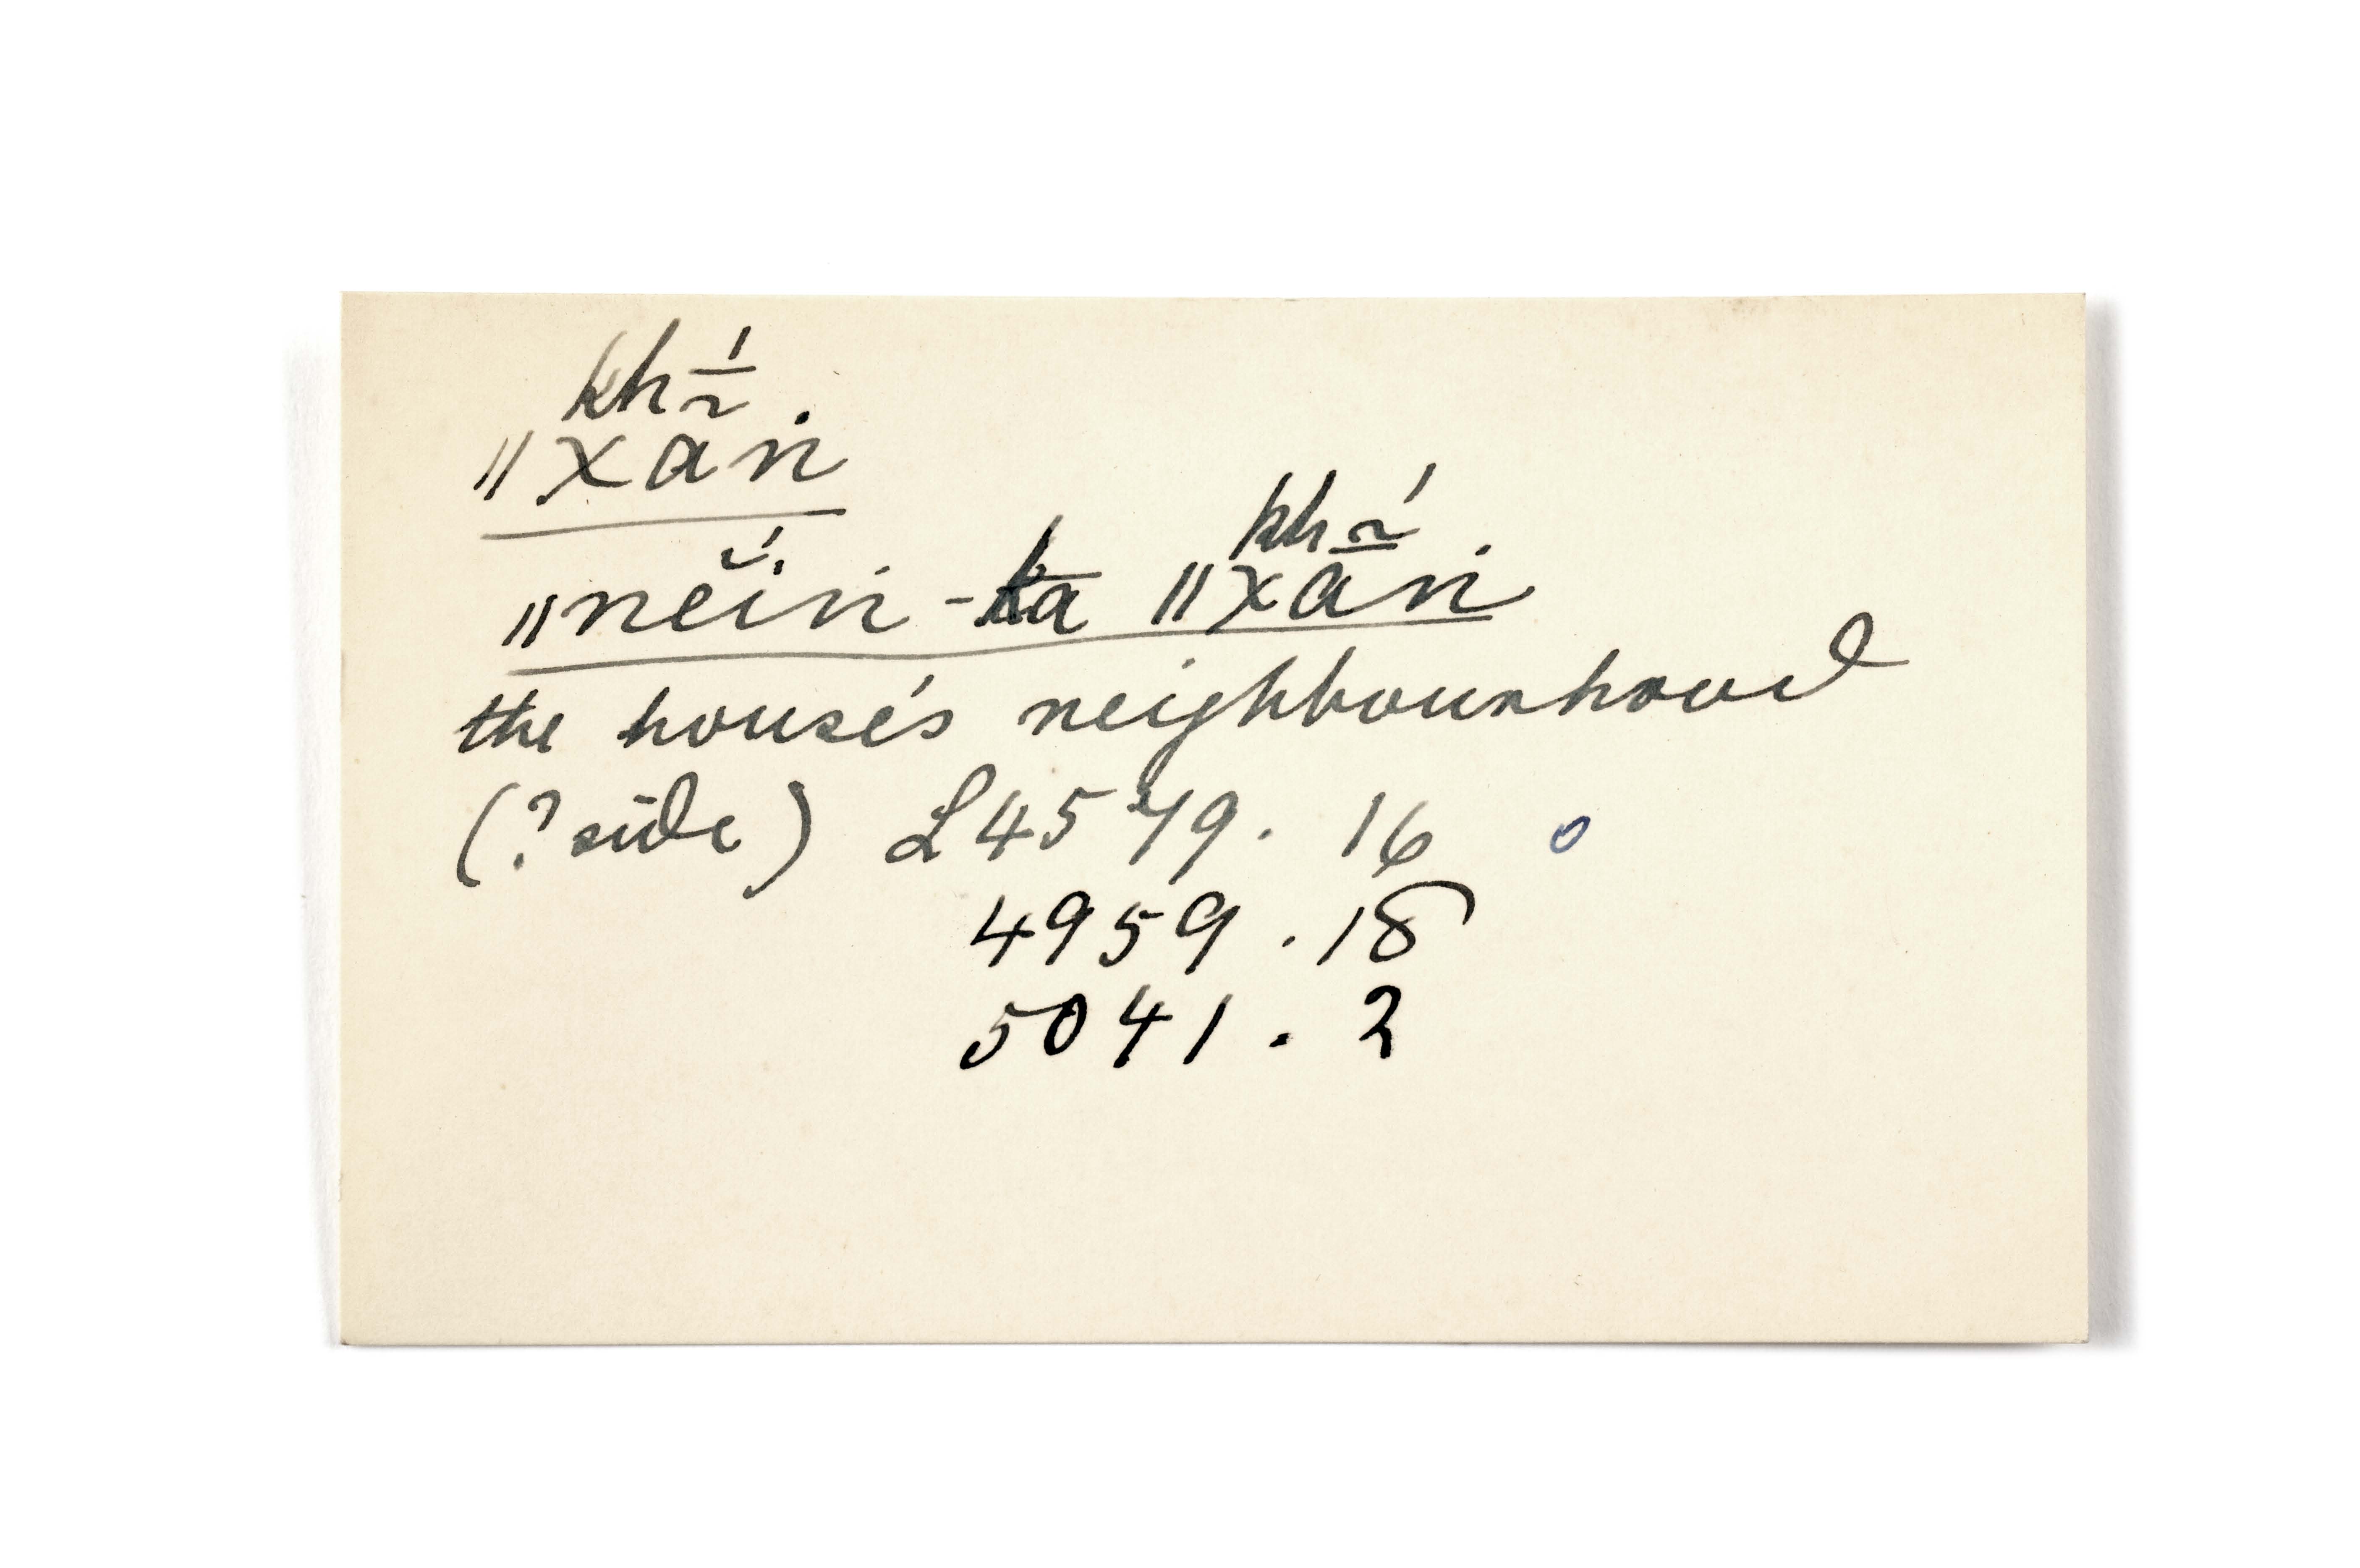 kh
ǁxaṅ
kh
ǁnĕiṅ-ta ǁxāṅ
the house's neighbourhood
(? side) L4579. 16 o
4959. 18
5041. 2